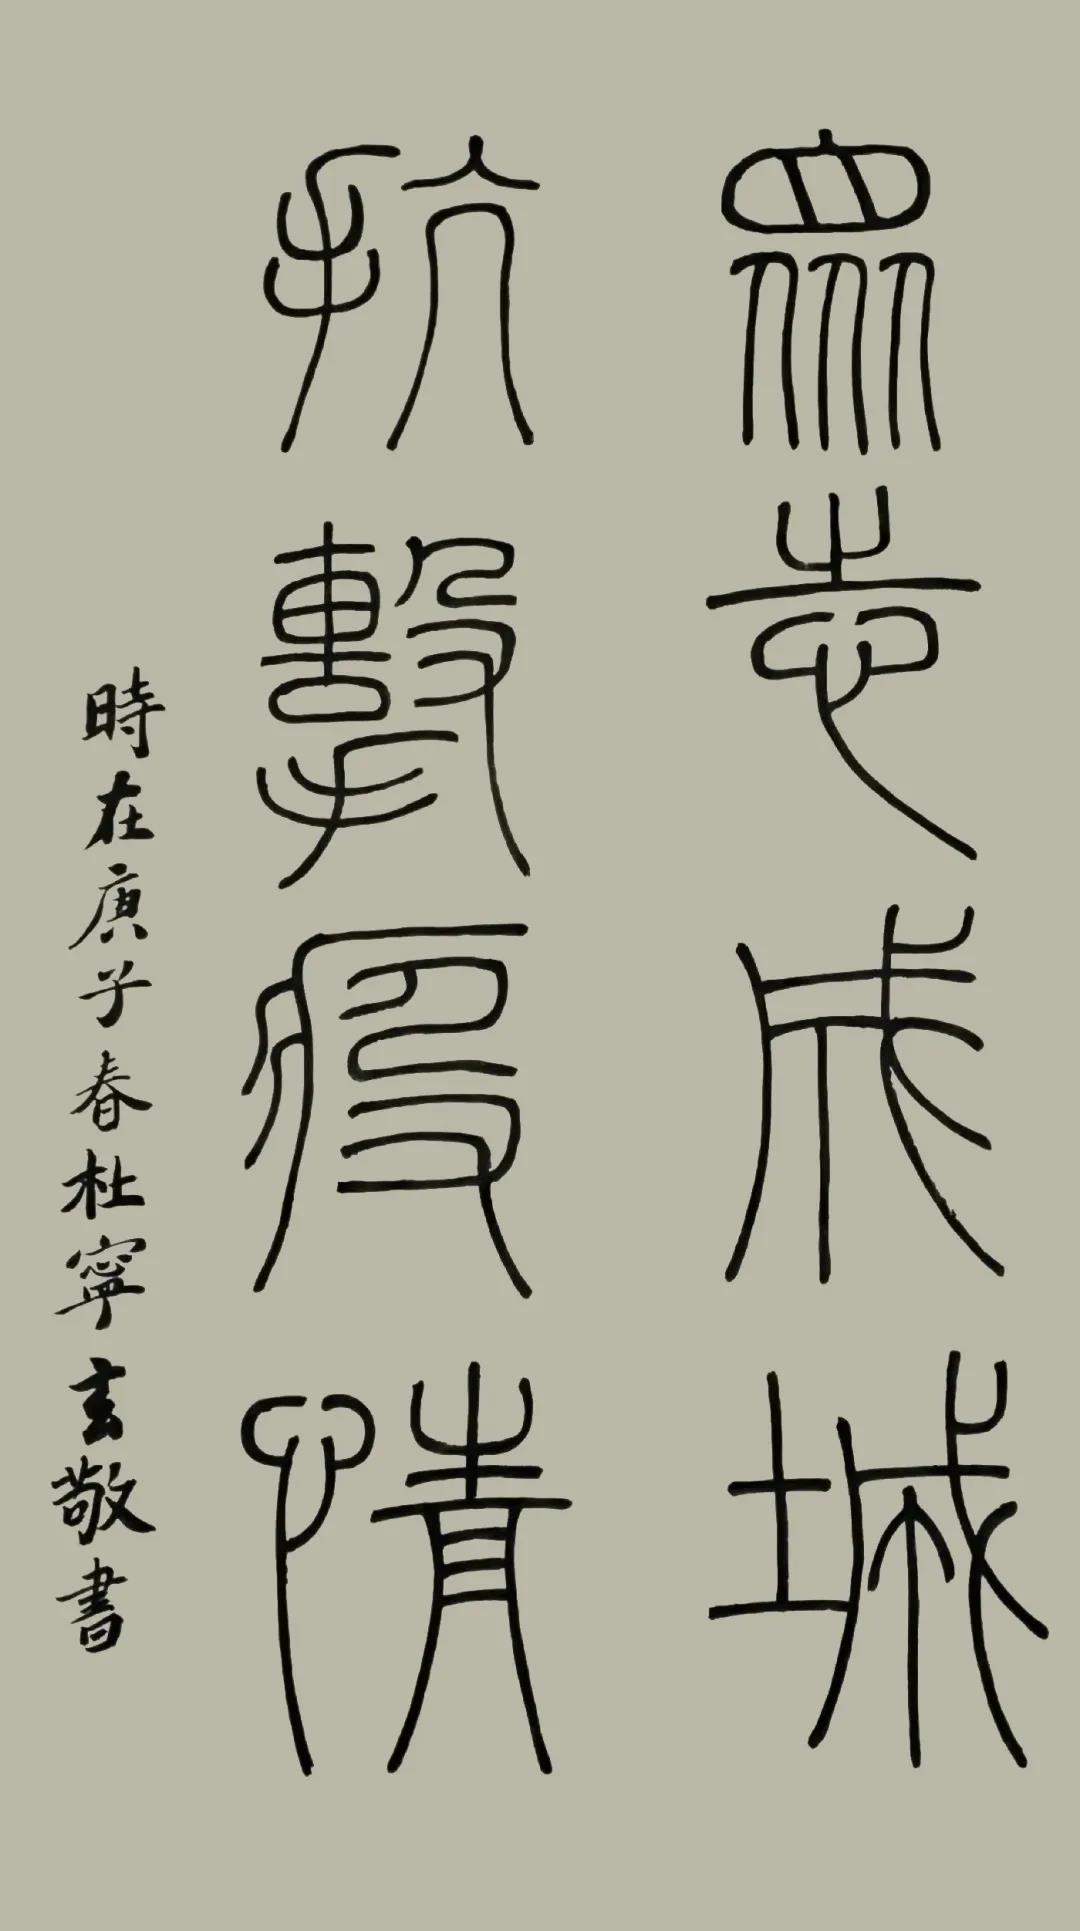 眾志成城
抗擊疫情
時在庚子春杜寧玄敬書